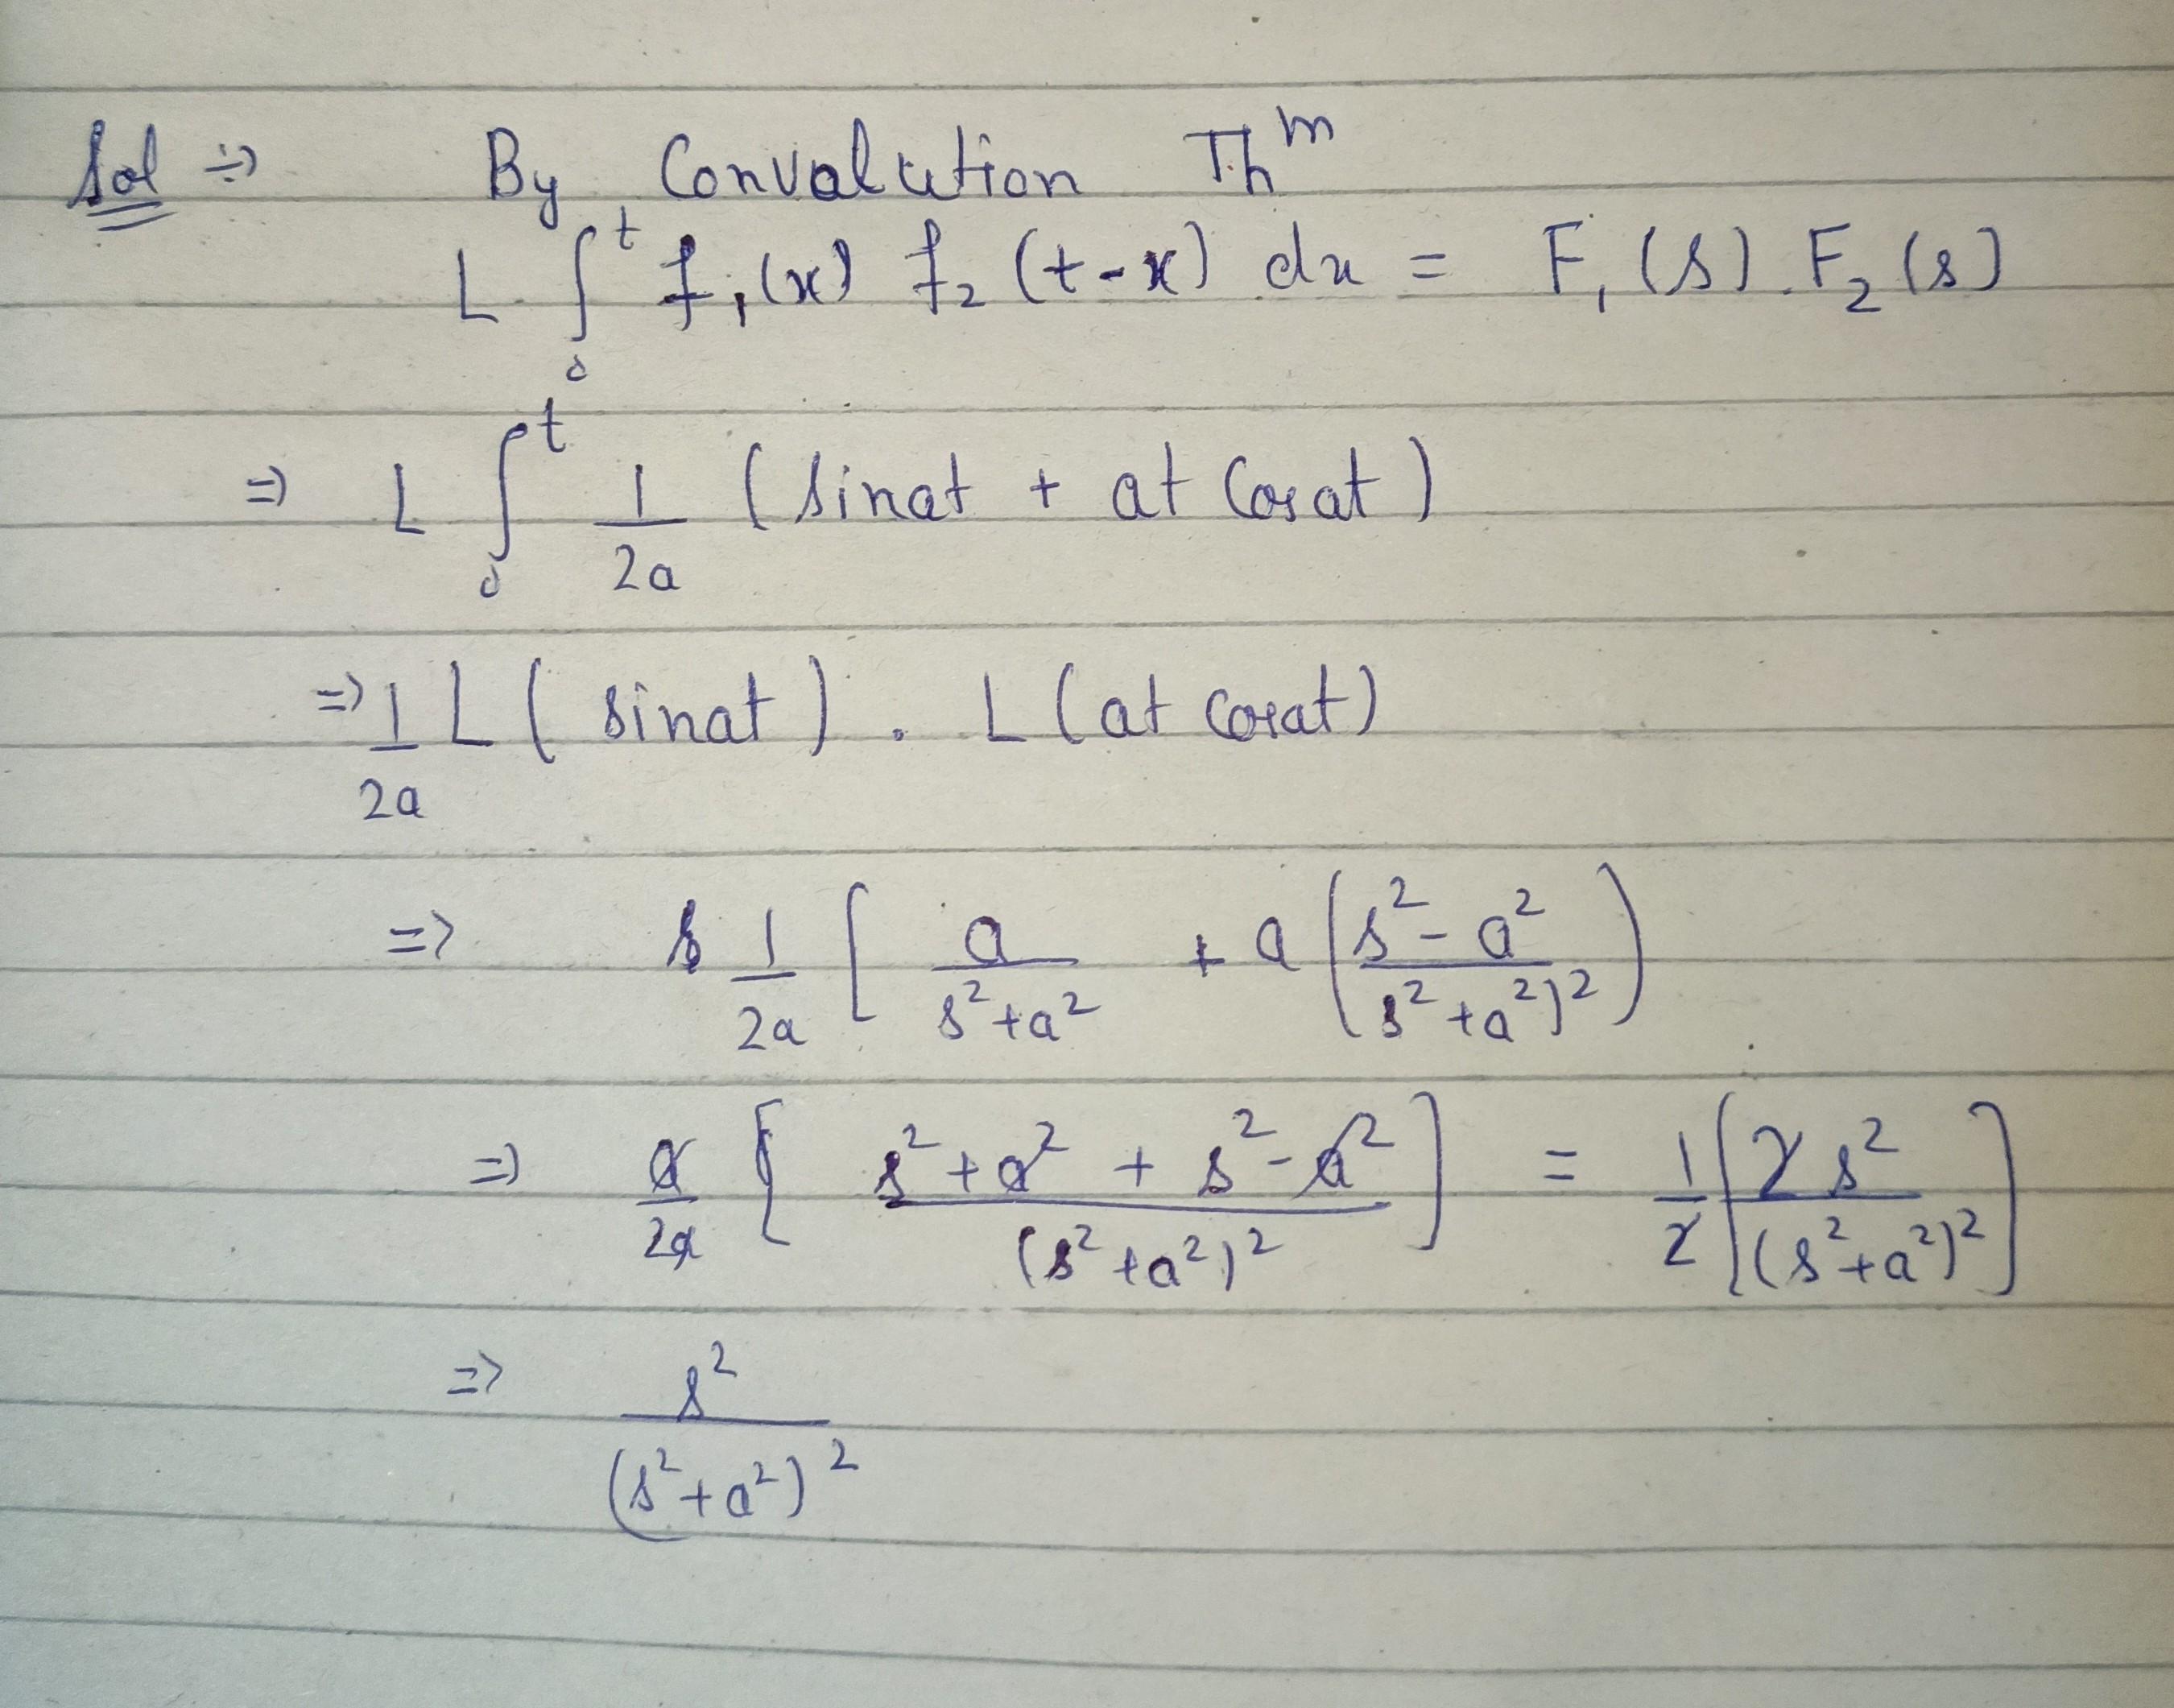 Sol ⇒ By Convalution Th^m
L ∫_0^t f_1(x) f_2(t-x) dx = F_1(s).F_2(s)
⇒ L ∫_0^t 1/2a (sinat + at Cosat)
⇒ 1/2a L(sinat) . L(at cosat)
⇒ s 1/2a [ a/s^2+a^2 + a(s^2-a^2/s^2+a^2)^2)
⇒ a/2a [ s^2+a^2+s^2-a^2/(s^2+a^2)^2 ] = 1/2 [ 2s^2/(s^2+a^2)^2 ]
⇒ s^2/(s^2+a^2)^2